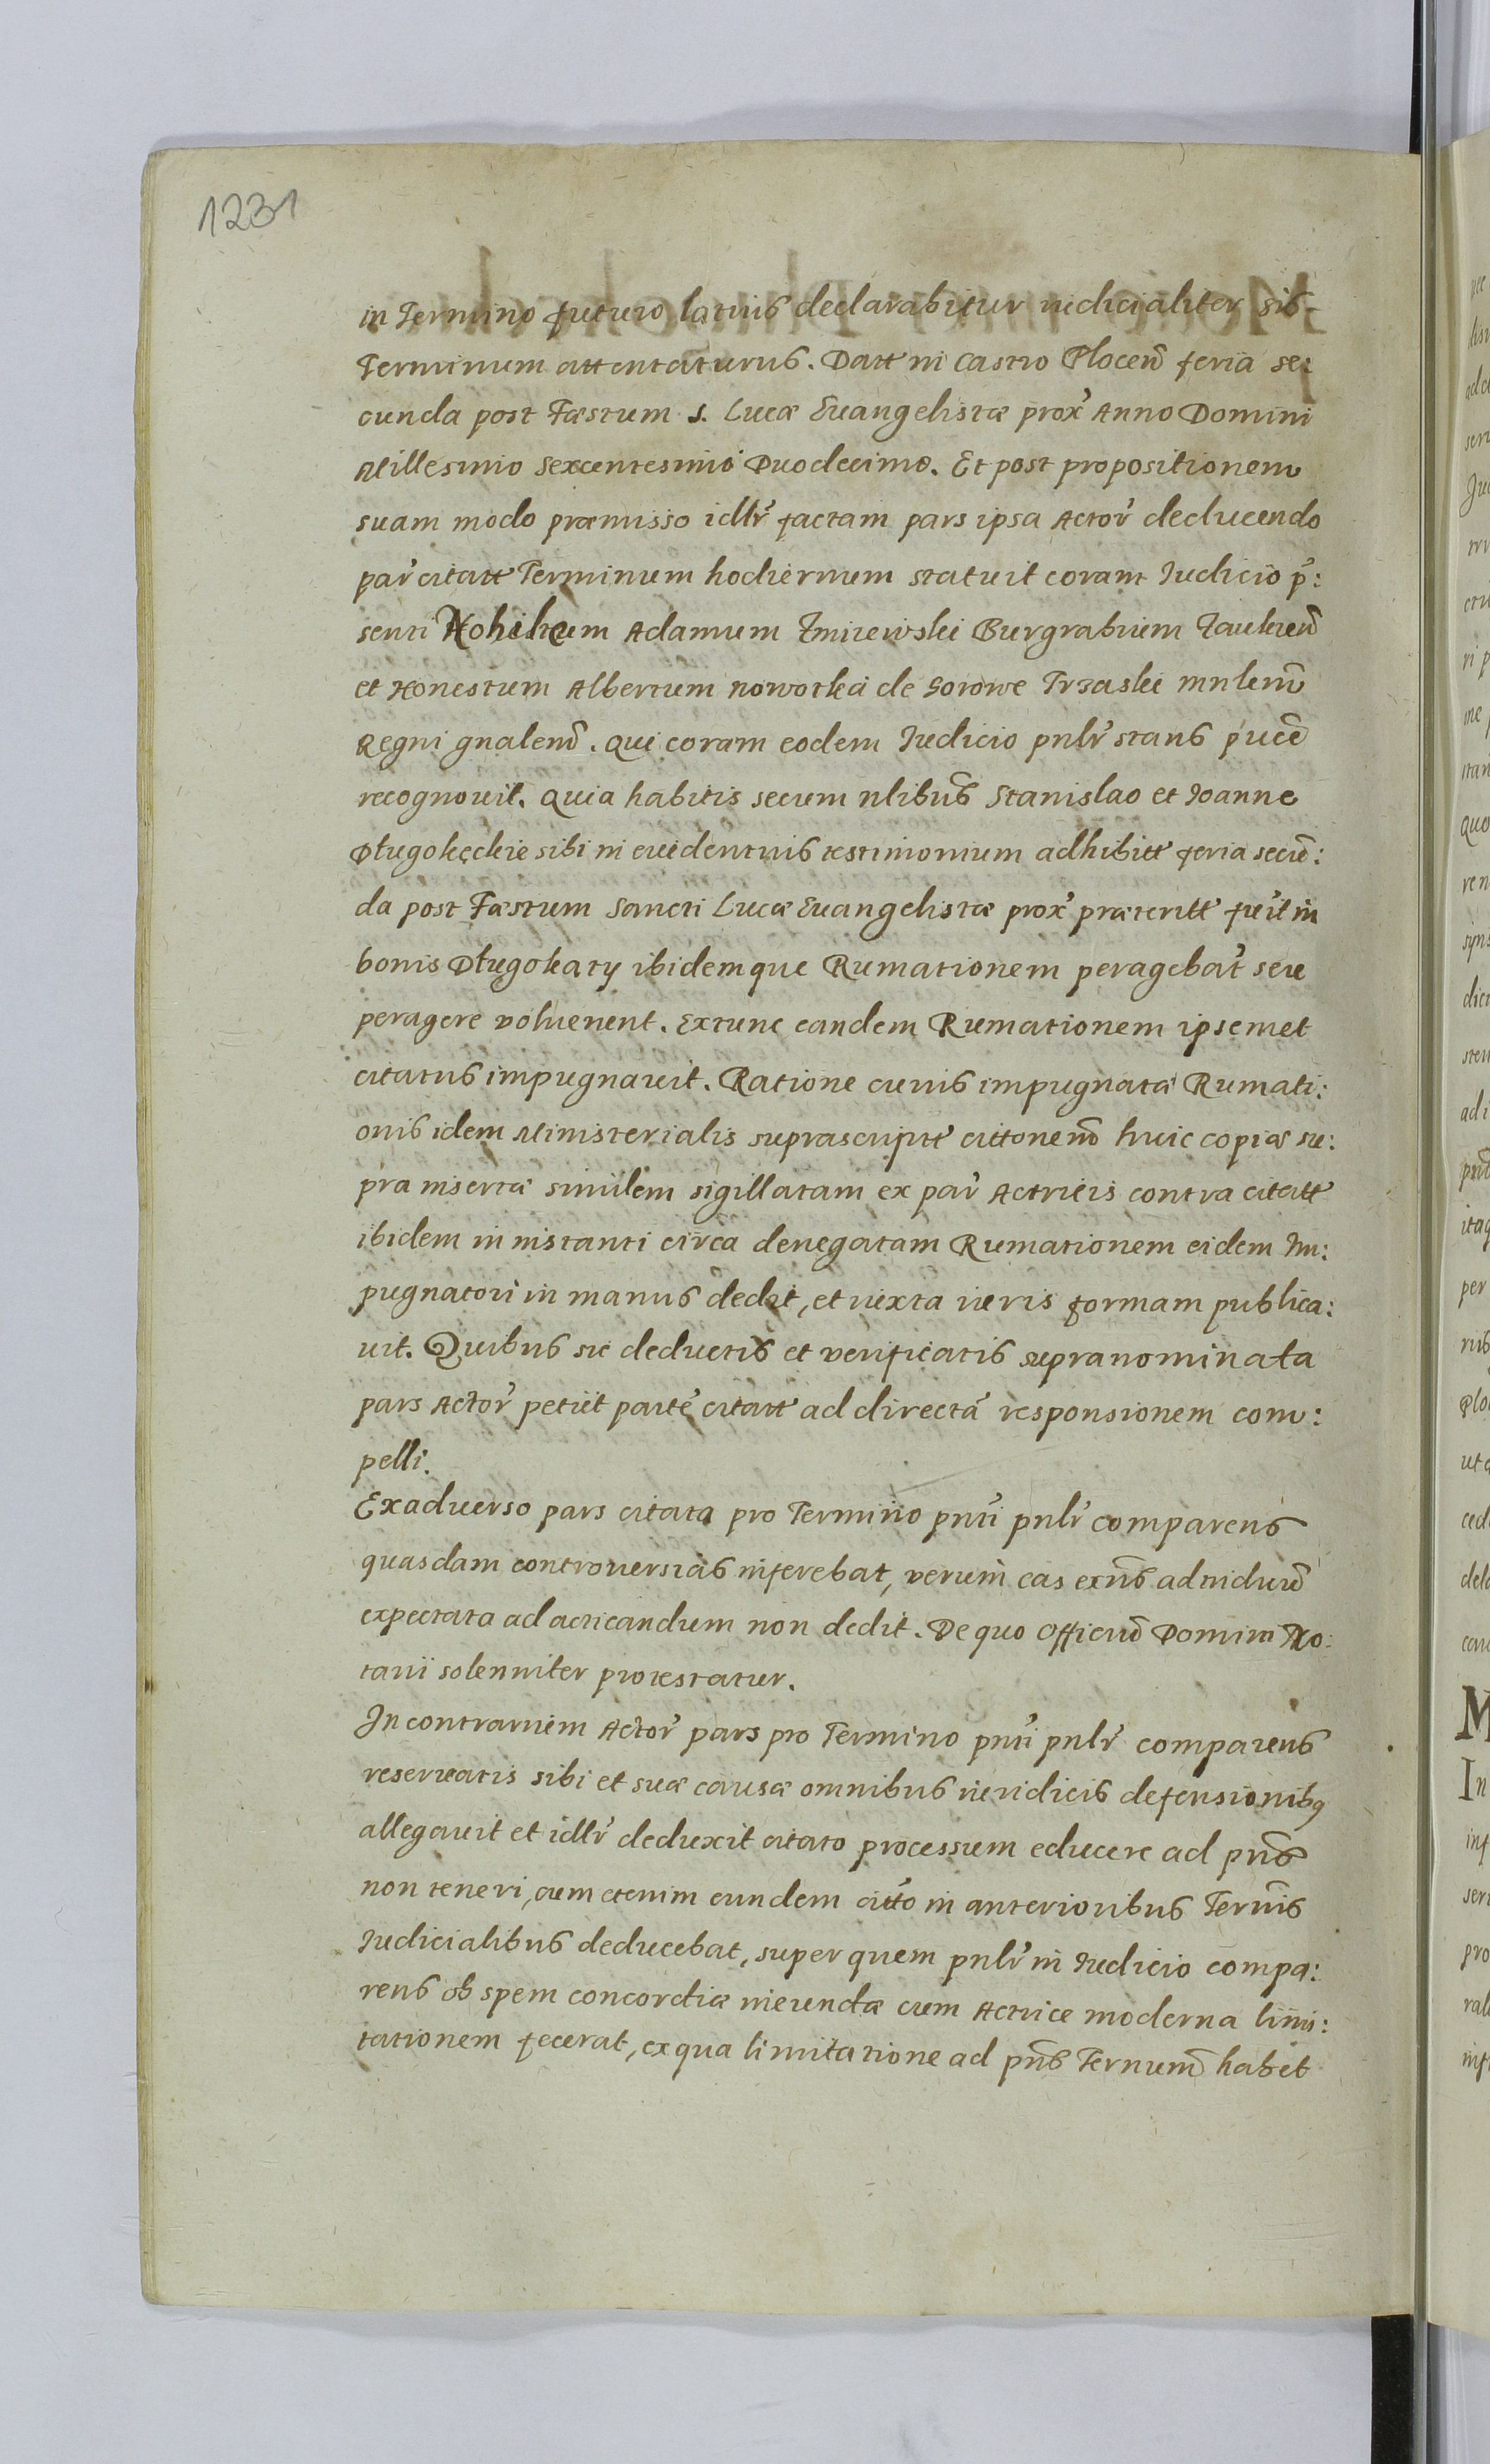 1231
in Termino futuro latius declarabitur iudicialiter sis-
Terminum attentaturus. Datt in Castro Plocen̄ feria se:
cunda post Fæstum S. Lucæ Euangelistæ prox' Anno Domini
Millesimo Sexcentesimo Duodecimo. Et post propositionem
suam modo præmisso idlr̄ factam pars ipsa Actor' deducendo
par' citatt Terminum hodiernum statuit coram Iudicio p̄:
senti Nobilem Adamum Zmirewski Burgrabium
et Honestum Albertum Nowotka de Gorowe Trzaski mnlem̄
Regni gnalem̄. Qui coram eodem Iudicio pnlr' stans
recognouit. Quia habitis secum nlibus̄ Stanislao et Joanne
Długokęckie sibi in euidentius testimonium adhibitt feria secū:
da post Fæstum Sancti Lucæ Euangelistæ prox' præteritt fuit in
bonis Długokąty ibidemque Rumationem peragebat seu
peragere voluerient. Extunc eandem Rumationem ipsemet
citatus impugnauit. Ratione cuius impugnatæ Rumati:
onis idem Ministerialis suprascriptt cittonem̄ huic copiæ su:
pra insertæ similem sigillatam ex par' Actricis contra citatt
ibidem in instanti circa denegatam Rumationem eidem Im:
pugnatori in manus dedit, et iuxta iuris formam publica:
uit. Quibus sic deductis et verificatis supranominata
pars Actor' petiit partē citatt ad directā responsionem com:
pelli.
Exaduerso pars citata pro Termino pnti pnlr' comparens
quasdam controuersias inferebat, verum eas exn̄s ad triduum̄
expectata ad acticandum non dedit. De quo Officium̄ Domini No:
tarii solenniter protestatur.
In contrarium Actor' pars pro Termino pnti pnlr' comparens
reseruatis sibi et suæ causæ omnibus iuridicis defensionibq
allegauit et idlr' deduxit citato processum educere ad pn̄s
non teneri, cum etenim eundem citto in anterioribus Term̄is
Iudicialibus deducebat, super quem pnlr' in Iudicio compa:
rens ob spem concordiæ ineundæ cum Actrice moderna limi:
tationem fecerat, ex qua limitatione ad pn̄s Ternum̄ habet